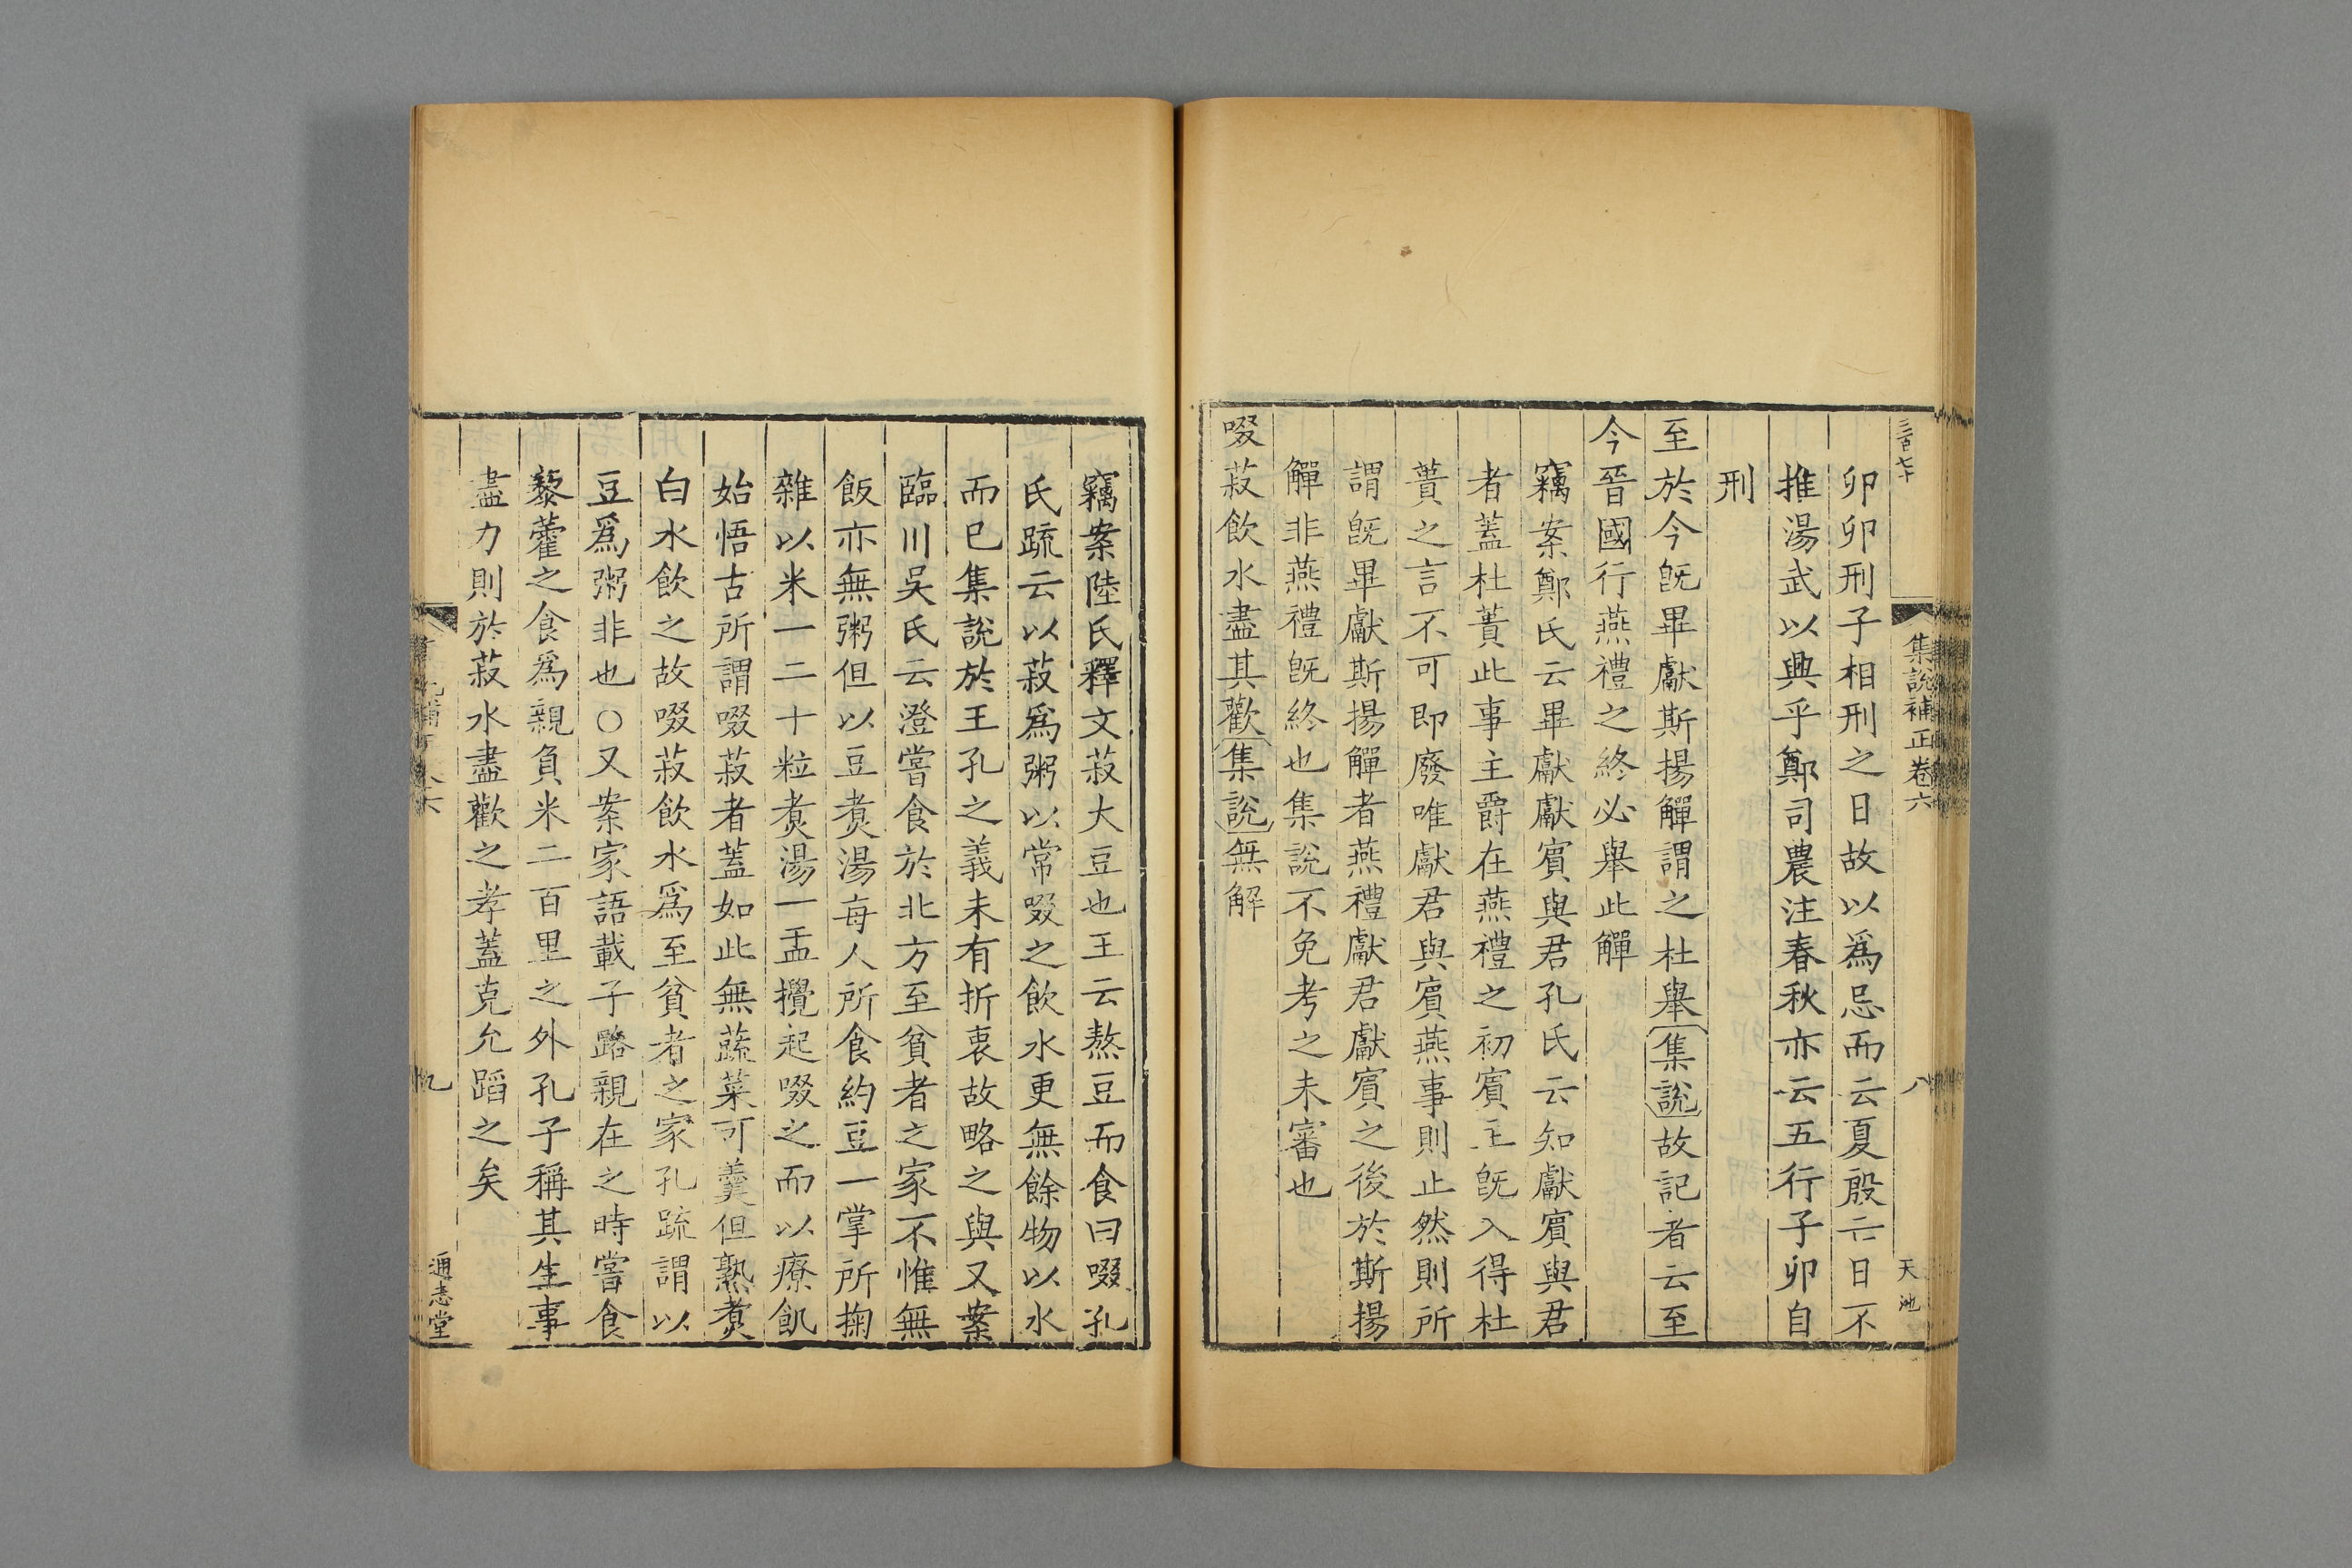 三百七十
集說補正卷六
八
天池
卯卯刑子相刑之日故以爲忌而云夏殷亡日不
推湯武以興乎鄭司農注春秋亦云五行子卯自
刑
至於今旣畢獻斯揚觶謂之杜舉集說故記者云至
今晉國行燕禮之終必舉此觶
竊案鄭氏云畢獻獻賓與君孔氏云知獻賓與君
者蓋杜蕢此事主爵在燕禮之初賓主旣入得杜
蕢之言不可即廢唯獻君與賓燕事則止然則所
謂旣畢獻斯揚觶者燕禮獻君獻賓之後於斯揚
觶非燕禮旣終也集說不免考之未審也
啜菽飲水盡其歡集說無解
竊案陸氏釋文菽大豆也王云熬豆而食曰啜孔
氏疏云以菽爲粥以常啜之飲水更無餘物以水
而已集說於王孔之義未有折衷故略之與又案
臨川吳氏云澄嘗食於北方至貧者之家不惟無
飯亦無粥但以豆煑湯每人所食約豆一掌所掬
雜以米一二十粒煑湯一盂攪起啜之而以療飢
始悟古所謂啜菽者蓋如此無蔬菜可羹但熟煑
白水飲之故啜菽飲水爲至貧者之家孔疏謂以
豆爲粥非也○又案家語載子路親在之時嘗食
藜藿之食爲親負米二百里之外孔子稱其生事
盡力則於菽水盡歡之孝蓋克允蹈之矣
九
通志堂